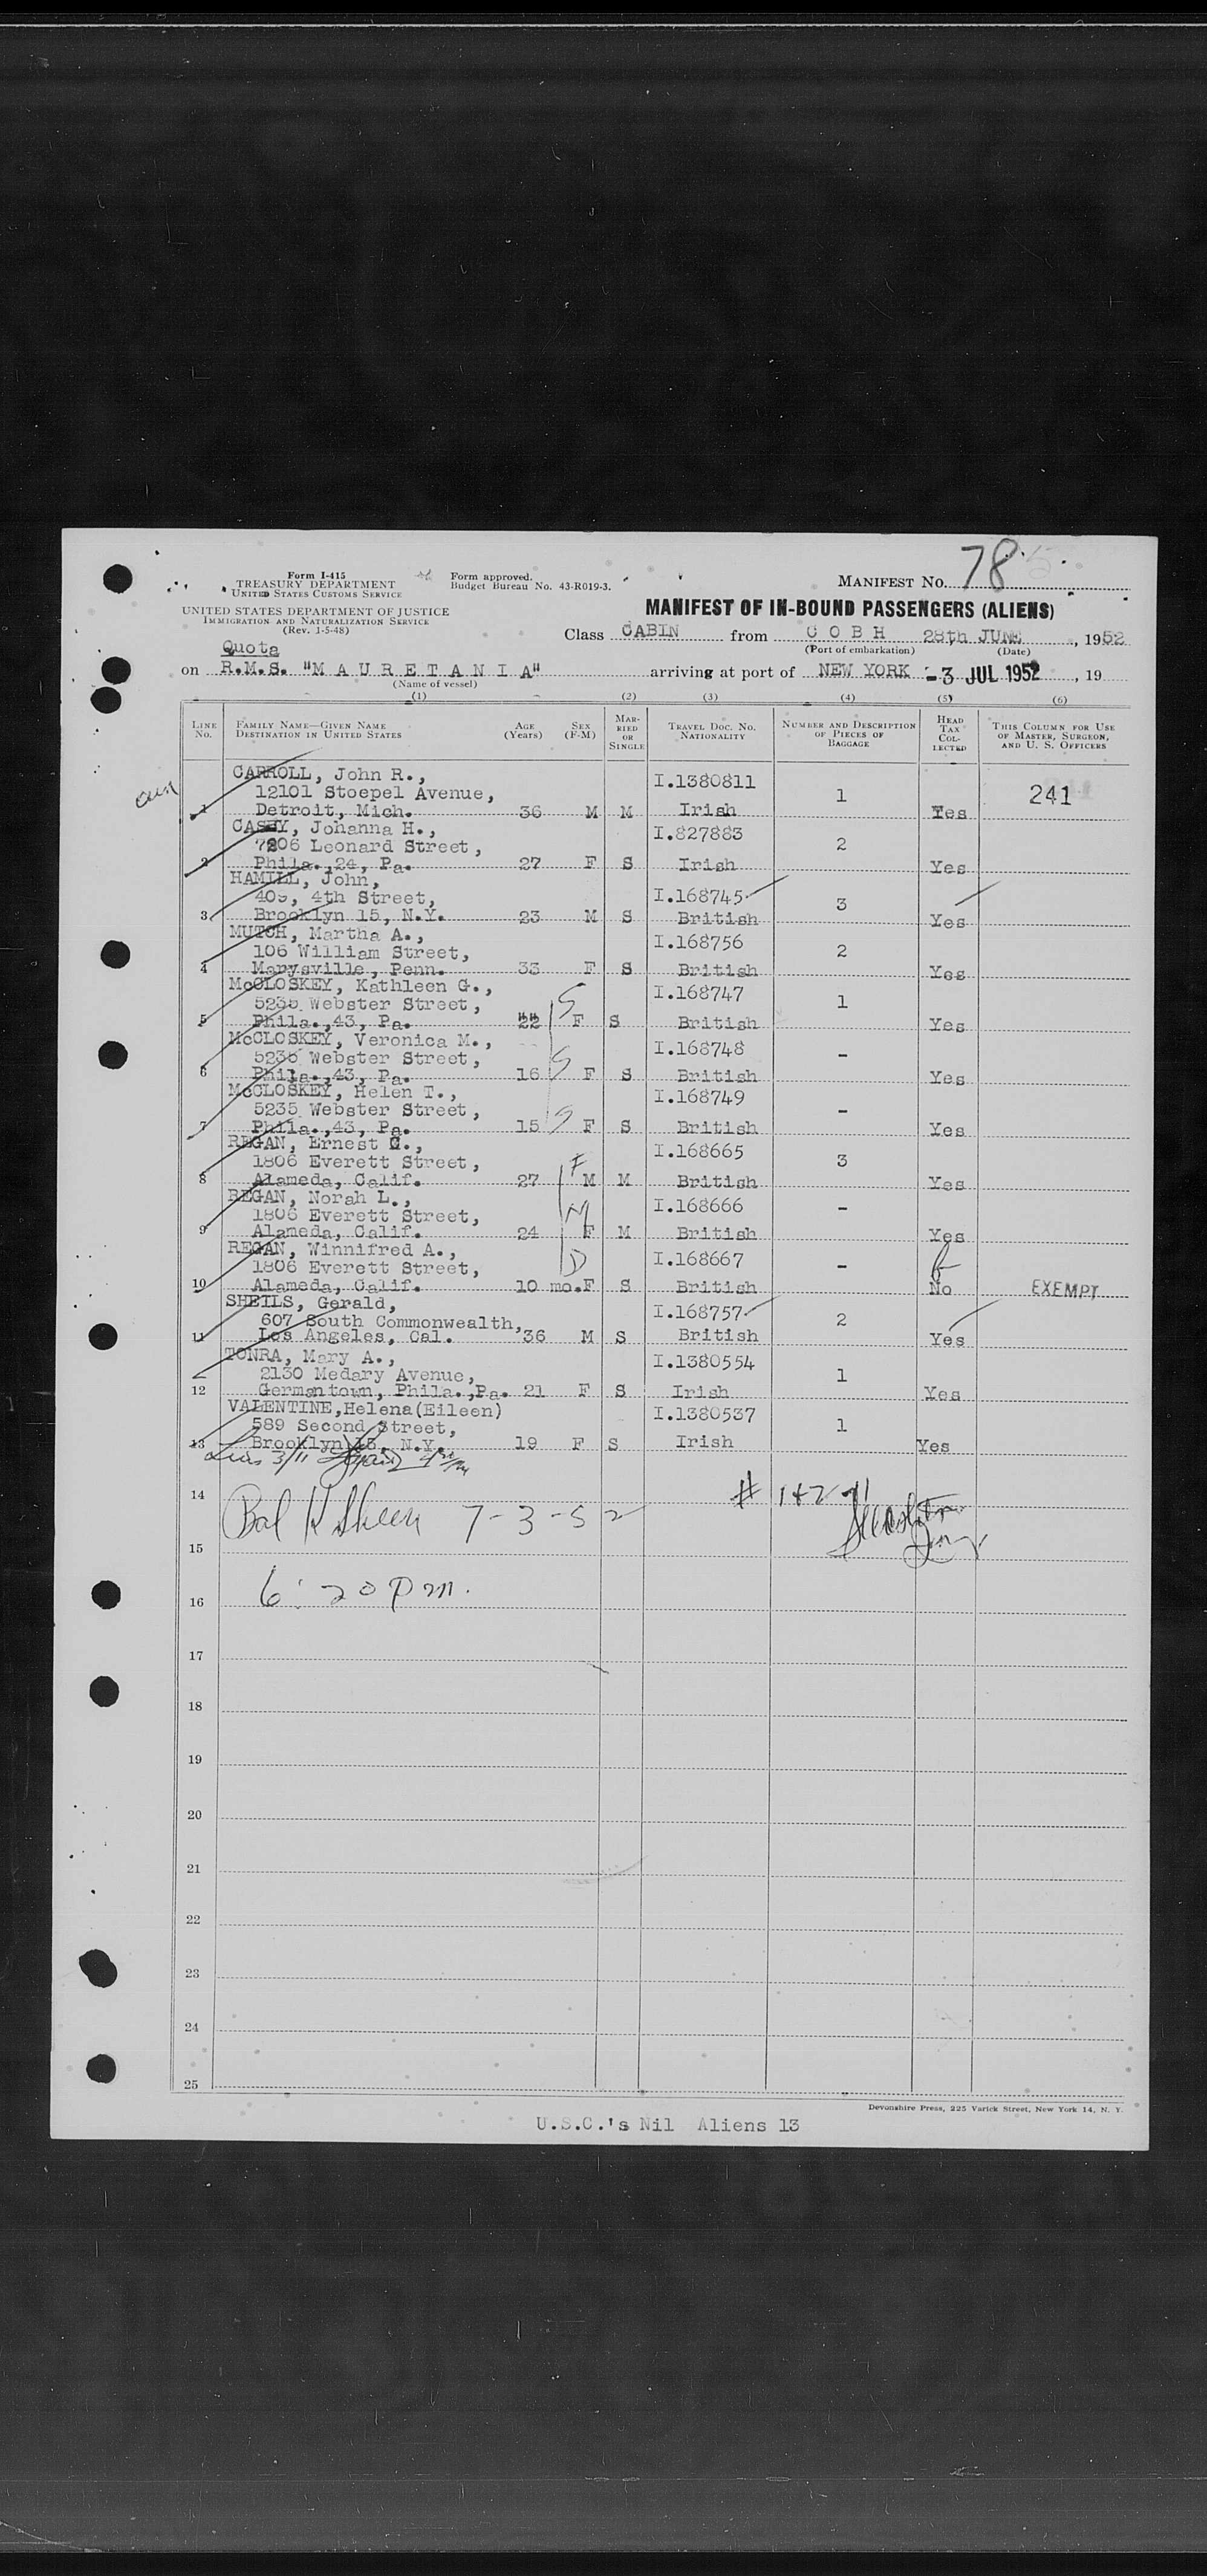 78
Form I-415
TREASURY DEPARTMENT
UNITED STATES CUSTOMS SERVICE
Form approved.
Budget Bureau No. 43-R019-3.
MANIFEST No.
UNITED STATES DEPARTMENT OF JUSTICE
IMMIGRATION AND NATURALIZATION SERVICE
(Rev. 1-5-48)
MANIFEST OF IN-BOUND PASSENGERS (ALIENS)
Class CABIN from C O B H 28th JUNE, 1952
(Port of embarkation) (Date)
Quota
on R.M.S. "M A U R E T A N I A" arriving at port of NEW YORK -3 JUL 1952, 19
(Name of vessel)
(1) (2) (3) (4) (5) (6)
LINE No. FAMILY NAME—GIVEN NAME DESTINATION IN UNITED STATES AGE (Years) SEX (F-M) MARRIED OR SINGLE TRAVEL DOC. NO. NATIONALITY NUMBER AND DESCRIPTION OF PIECES OF BAGGAGE HEAD TAX COLLECTED THIS COLUMN FOR USE OF MASTER, SURGEON, AND U. S. OFFICERS
CARROLL, John R., I.1380811
12101 Stoepel Avenue, 1 241
1 Detroit, Mich. 36 M M Irish Yes
CASEY, Johanna H., I.827883
7206 Leonard Street, 2
2 Phila.,24, Pa. 27 F S Irish Yes
HAMILL, John, I.168745
409, 4th Street, 3
3 Brooklyn 15, N.Y. 23 M S British Yes
MUTCH, Martha A., I.168756
106 William Street, 2
4 Marysville, Penn. 33 F S British Yes
McCLOSKEY, Kathleen G., I.168747
5235 Webster Street, S 1
5 Phila.,43, Pa. 22 F S British Yes
McCLOSKEY, Veronica M., I.168748
5235 Webster Street, S -
6 Phila.,43, Pa. 16 F S British Yes
McCLOSKEY, Helen T., I.168749
5235 Webster Street, S -
7 Phila.,43, Pa. 15 F S British Yes
REGAN, Ernest G., I.168665
1806 Everett Street, F 3
8 Alameda, Calif. 27 M M British Yes
REGAN, Norah L., I.168666
1806 Everett Street, M -
9 Alameda, Calif. 24 F M British Yes
REGAN, Winnifred A., I.168667
1806 Everett Street, D -
10 Alameda, Calif. 10 mo. F S British No EXEMPT
SHEILS, Gerald, I.168757
607 South Commonwealth, 2
11 Los Angeles, Cal. 36 M S British Yes
TONRA, Mary A., I.1380554
2130 Medary Avenue, 1
12 Germantown, Phila.,Pa. 21 F S Irish Yes
VALENTINE, Helena(Eileen) I.1380537
589 Second Street, 1
13 Brooklyn 15, N.Y. 19 F S Irish Yes
3/11
14
7-3-52
15
6:20 pm.
16
17
18
19
20
21
22
23
24
25
Devonshire Press, 225 Varick Street, New York 14, N. Y.
U.S.C.'s Nil Aliens 13